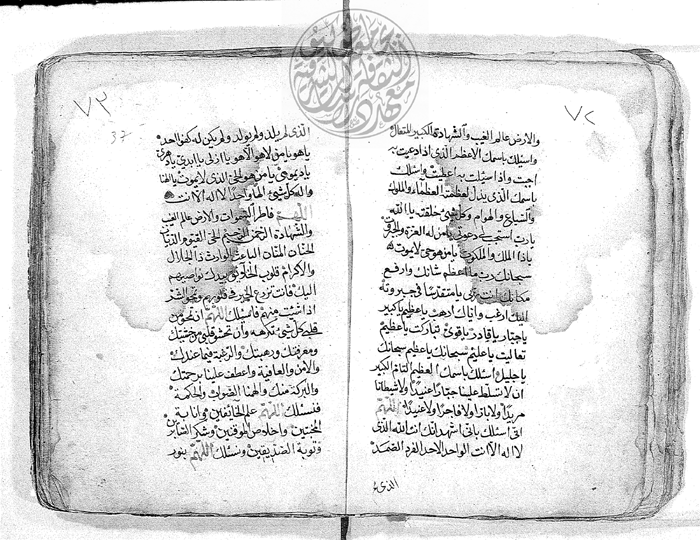 ٧٢
والارض عالم الغيب والشهادة الكبير المتعال
واسئلك باسمك الاعظم الذى اذا دعيت به
اجبت واذا سئلت به اعطيت واسئلك
باسمك الذى يذل لعظمته العظماء والملوك
والسباع والهوام وكل شئ خلقته يا الله
يارب استجب لى دعوتى يا من له العزة والجبروت
ياذا الملك والملكوت يا من هو حى لا يموت
سبحانك رب ما اعظم شانك وارفع
مكانك انت ربى يا متقدسا فى جبروته
اليك ارغب واياك ارهب يا عظيم يا كبير
يا جبار يا قادر يا قوى تباركت يا عظيم
تعاليت يا عليم سبحانك يا عظيم سبحانك
يا جليل اسئلك باسمك العظيم التام الكبير
ان لا تسلط علينا جبارا عنيدا ولا شيطانا
مريدا ولا فاجرا ولا عنيدا اللهم
انى اسئلك بانى اشهد انك انت الله الذى
لا اله الا انت الواحد الاحد الفرد الصمد
الذى
٧٣
37
الذى لم يلد ولم يولد ولم يكن له كفوا احد
يا هو يا من لا هو الا هو يا ازلى يا ابدى يا دهرى
يا ديمومى يا من هو الحى الذى لا يموت يا الهنا
واله كل شئ الها واحدا لا اله الا انت
اللهم فاطر السموات والارض عالم الغيب
والشهادة الرحمن الرحيم الحى القيوم الديان
الحنان المنان الباعث الوارث ذا الجلال
والاكرام قلوب الخلائق بيدك نواصيهم
اليك فانت تزرع الخير فى قلوبهم وتمحو الشر
اذا شئت منهم فاسئلك اللهم ان تمحو من
قلبى كل شئ تكرهه وان تحشو قلبى من خشيتك
ومعرفتك ورهبتك والرغبة فيما عندك
والامن والعافية واعطف علينا برحمتك
والبركة منك والهمنا الصواب والحكمة
فنسئلك اللهم علم الخائفين وانابة
المخبتين واخلاص الموقنين وشكر الصابرين
وتوبة الصديقين ونسئلك اللهم بنور